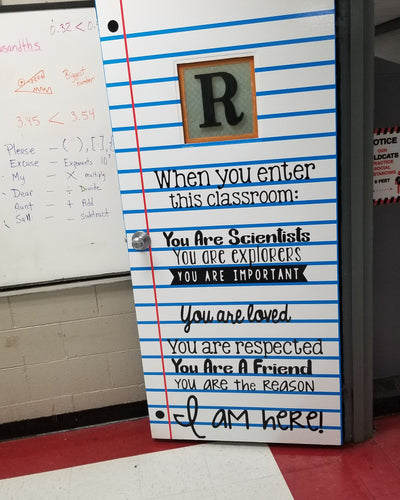 0.32 < 0.
usandths
Biggest
number
3.45 < 3.54
Please - ( ), [ ],
Excuse - Exponents 10
My - × multiply
Dear - ÷ Divide
Aunt - + Add
Sall - - subtract
R
When you enter
this classroom:
You Are Scientists
You are explorers
YOU ARE IMPORTANT
You are loved
You are respected
You Are A Friend
you are the reason
I am here!
NOTICE
OUR
LDCATS
PRACTICE
SOCIAL
STANCING
6 FEET